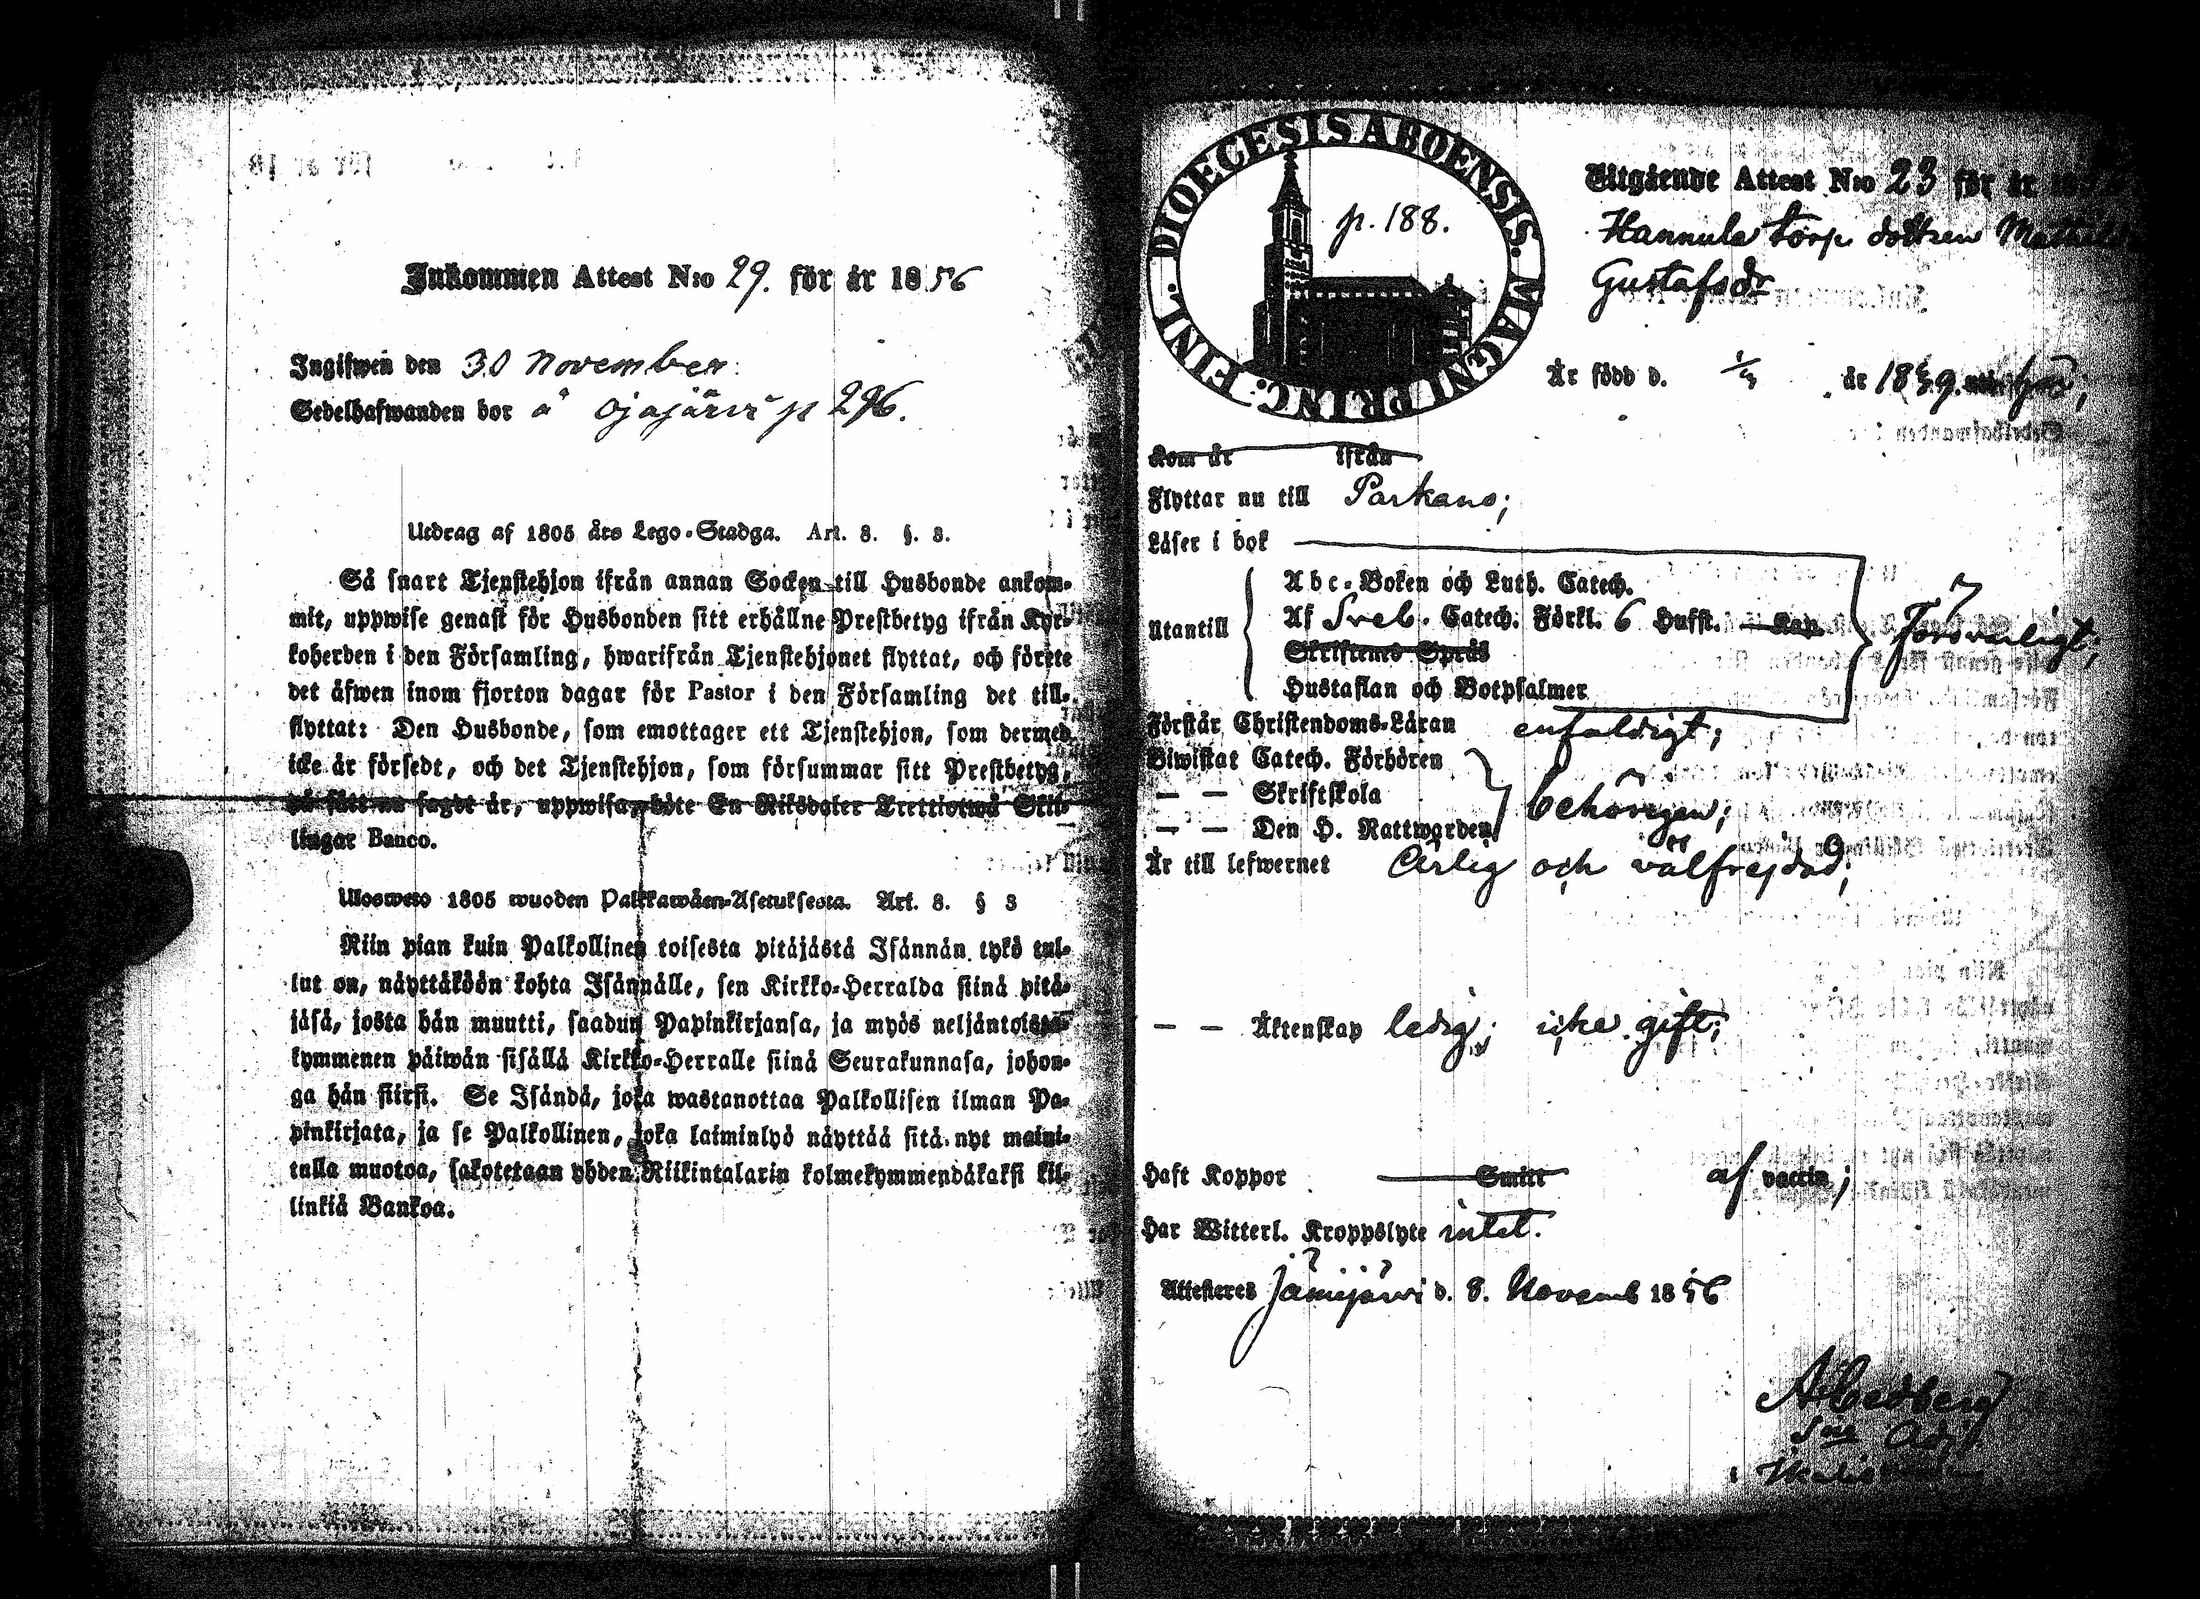 Inkommen Attest N:o 29. för år 1856
Ingifwen den 30 November.
Sedelhafwanden bor å Ojajärvi p 296.
Utdrag af 1805 års Lego-Stadga. Art. 8. §. 3.
Så snart Tjenstehjon ifrån annan Socken till Husbonde ankom-
mit, uppwise genast för Husbonden sitt erhållne Prestbetyg ifrån Kyr-
koherden i den Församling, hwarifrån Tjenstehjonet flyttat, och förete
det äfwen inom fjorton dagar för Pastor i den Församling det till-
flyttat: Den Husbonde, som emottager ett Tjenstehjon, som dermed
icke är försedt, och det Tjenstehjon, som försummar sitt Prestbetyg,
på sätt nu sagdt är, uppwisa, böte En Riksdaler Trettiotwå Skil-
lingar Banco.
Ulosweto 1805 wuoden Palkkawäen-Asetuksesta. Art. 8. § 3
Niin pian kuin Palkollinen toisesta pitäjästä Isännän tykö tul-
lut on, näyttäköön kohta Isännälle, sen Kirkko-Herralda siinä pitä-
jäsä, josta hän muutti, saadun Papinkirjansa, ja myös neljäntoista-
kymmenen päiwän sisällä Kirkko-Herralle siinä Seurakunnasa, johon-
ga hän siirsi. Se Isändä, joka wastanottaa Palkollisen ilman Pa-
pinkirjata, ja se Palkollinen, joka laiminlyö näyttää sitä nyt maini-
tulla muotoa, sakotetaan yhden Riikintalarin kolmekymmendäkaksi kil-
linkiä Bankoa.
DIOECESIS ABOENSIS. MAGNI PRINC. FINL.
p. 188.
Utgående Attest N:o 23 för år
Hannula torp dottren
Gustafsdr
Är född d. år
Kom år ifrån
Flyttar nu till Parkano;
Läser i bok
Abc-Boken och Luth. Catech.
Utantill Af Sveb. Catech. Förkl. 6 Hufst. Kap Försvarligt;
Skriftens Språk
Hustaflan och Botpsalmer
Förstår Christendoms-Läran enfaldigt;
Biwistat Catech. Förhören
— — Skriftskola behörigen;
— — Den H. Nattwarden
Är till lefwernet Ärlig och välfrejdad;
— — Äktenskap ledig; icke gift;
Haft Koppor Smitt af vaccin;
Har Witterl. Kroppslyte intet.
Attesteres Jämijärvi d. 8. Novemb 1856
A Hedberg